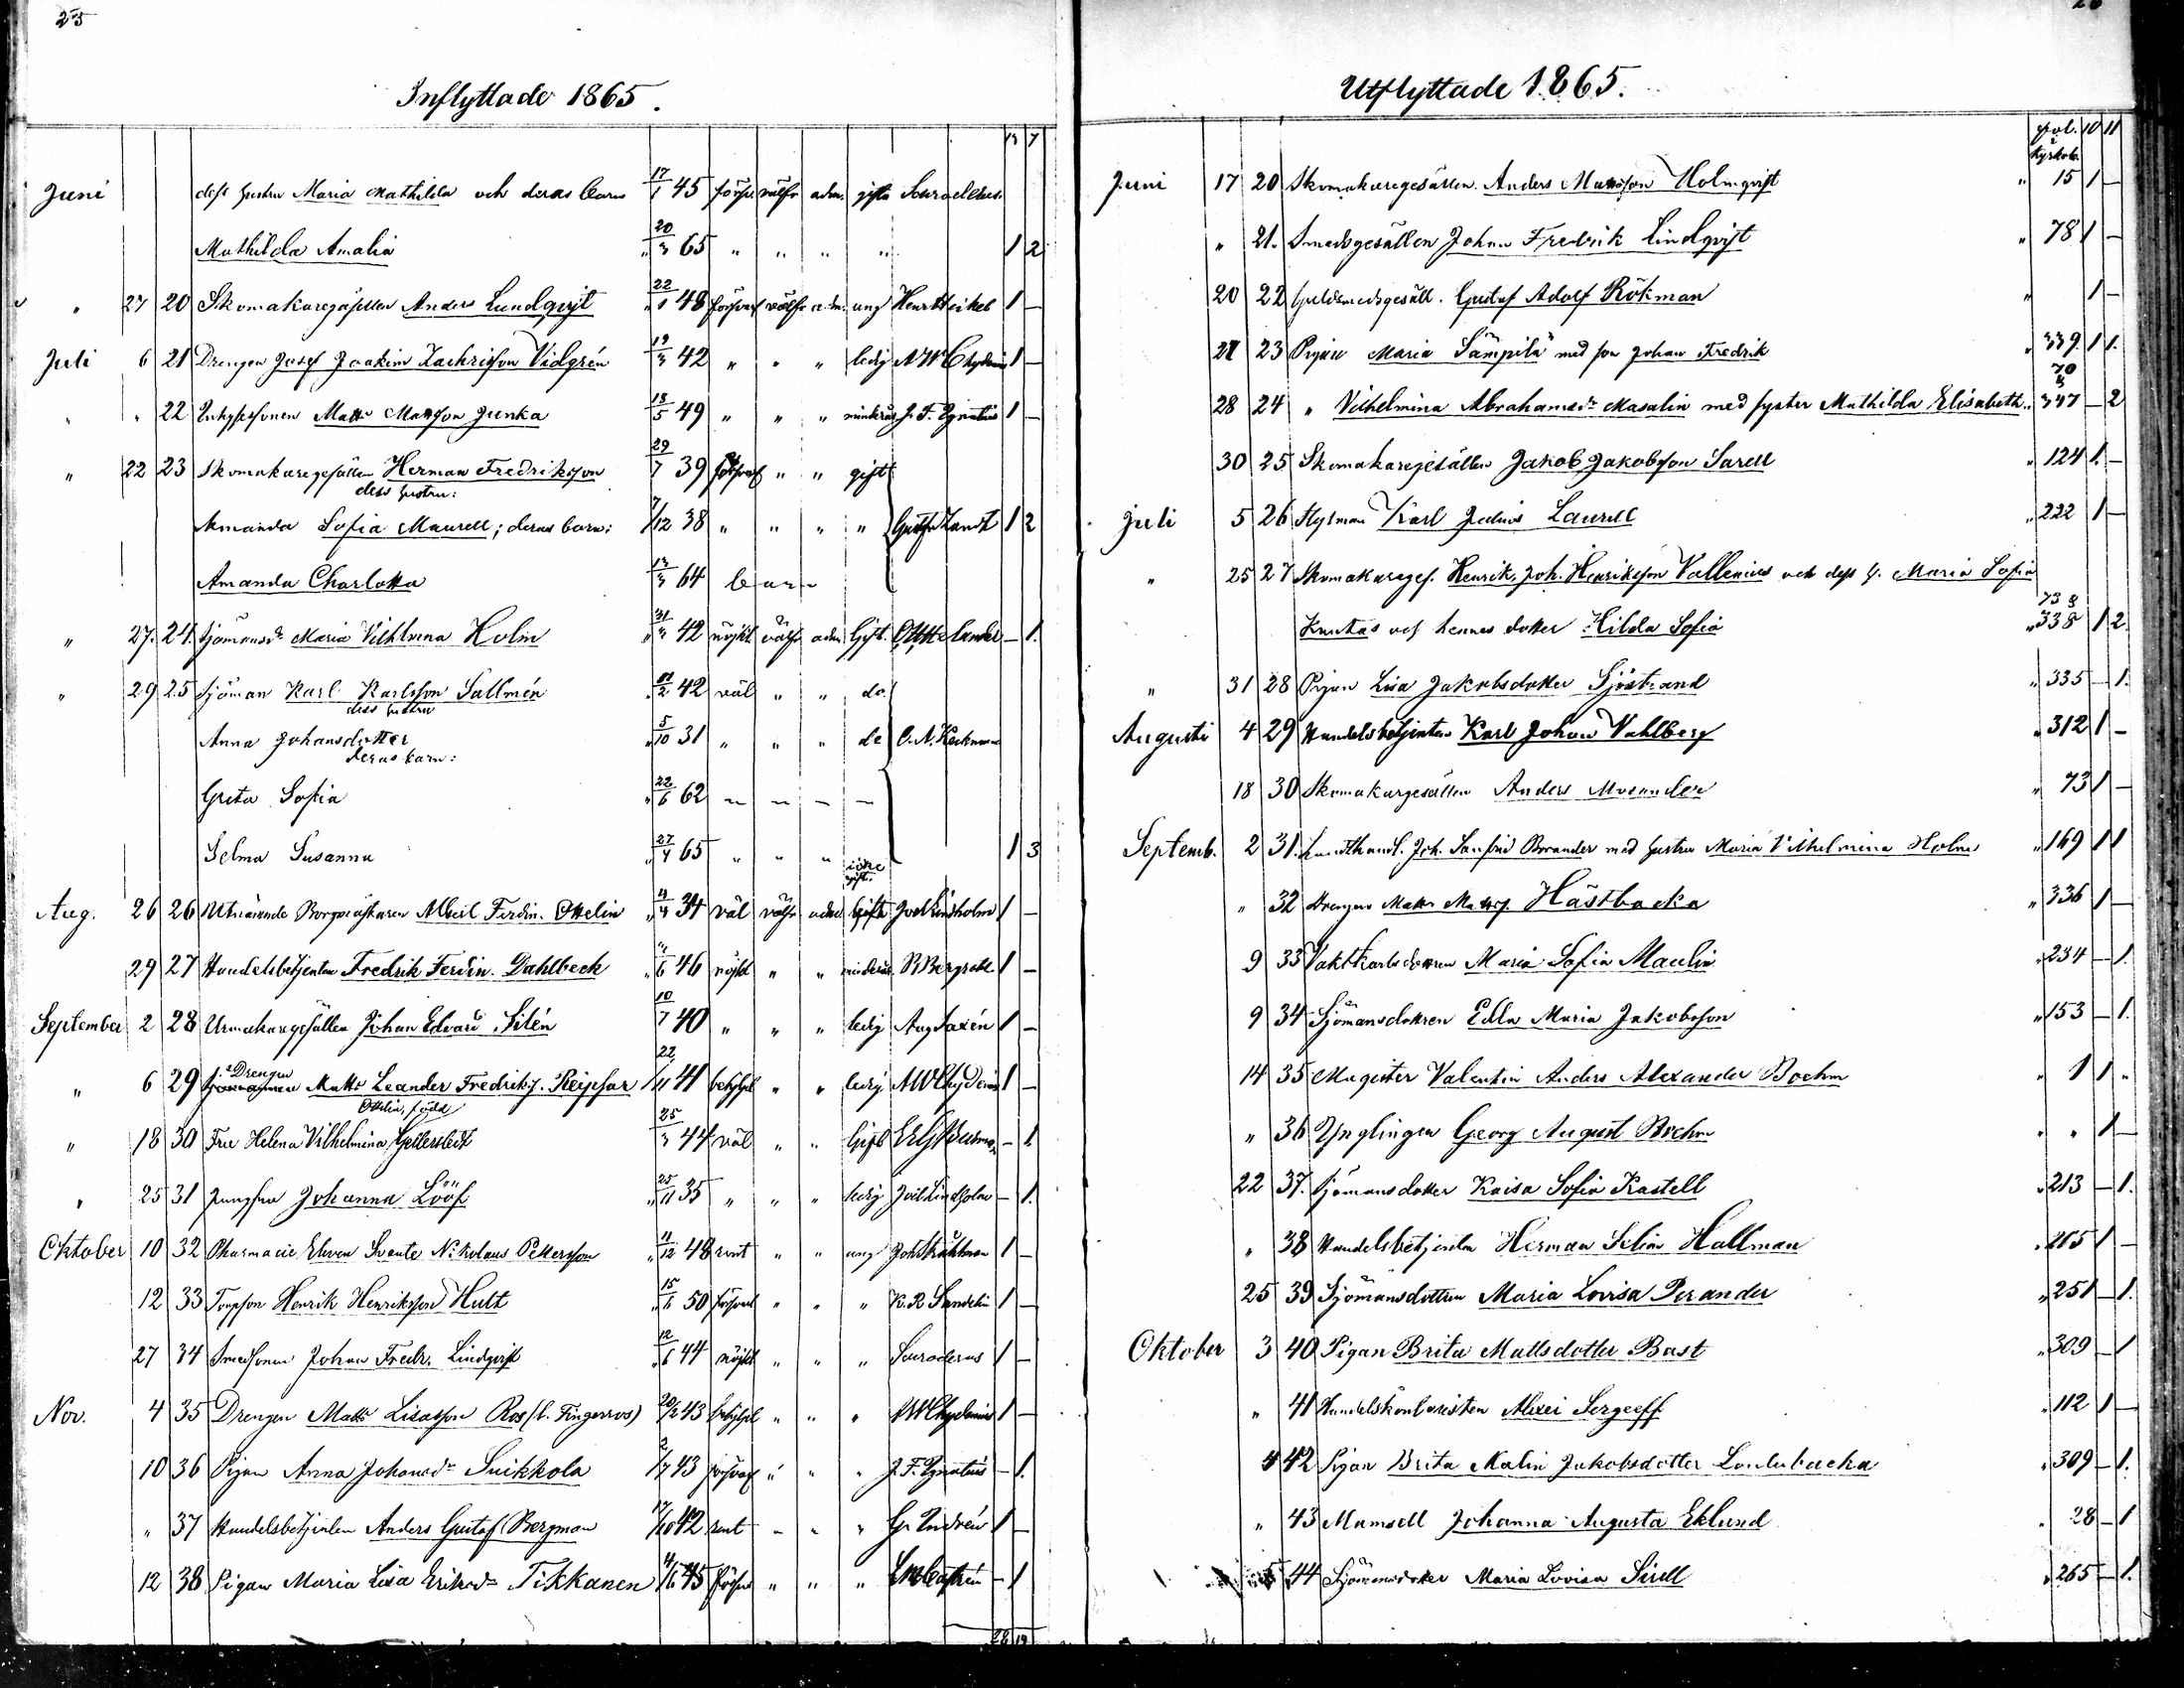 25
Inflyttade 1865.
13 7
Juni dess hustru Maria Mathilda och deras barn 17/1 45 försv. välfr. adm. gifta
Mathilda Amalia 20/3 65 " " " " 1 2
" 27 20 Skomakaregesällen Anders Lundqvist 22/1 48 försvarl välfr adm. ung 1 –
Juli 6 21 Drengen Josef Joakim Zachrisson Vidgrén 19/3 42 " " " ledig A W Chydenius 1 –
" " 22 Matts Mattsson Junka 18/5 49 " " " minderår. J. F. Ignatius 1 –
" 22 23 Skomakaregesällen Herman Fredriksson 29/7 39 försvarl " " gift
dess hustru:
Amanda Sofia Maurell; deras barn: 7/12 38 " " " " 1 2
Amanda Charlotta 13/3 64 barn
" 27. 24. Sjömansd:r Maria Vilhlmina Holm 31/3 42 nöjakt välfr adm. Gift. – 1.
" 29 25 Sjöman Karl Karlsson Sallmén 42 väl " " do
dess hustru
Anna Johansdotter 5/10 31 " " " do
deras barn:
Greta Sofia 22/6 62 " " – –
Selma Susanna 27/4 65 " " " 1 3
icke gift.
Aug. 26 26 Utnämnde Borgmästaren Albert Ferdin. Ottelin 11/4 34 väl välfr adm Gifta Joel Lindholm 1 –
29 27 Handelsbetjenten Fredrik Ferdin. Dahlbeck 46 nöjakt " " minderår. 1 –
September 2 28 Urmakaregesällen Johan Edvard Silén 10/7 40 " " " ledig Aug Saxén 1 –
Drengen
" 6 29 Matts Leander Fredriks. Reipsar 22/11 41 behjelpl " " ledig A W Chydenius 1 –
Ottelin, född
" 18 30 Fru Helena Vilhelmina Gestersledt 25/3 44 väl " " Gift – 1
" 25 31 Jungfru Johanna Lööf 25/11 35 " " " ledig Joel Lindholm – 1.
Oktober 10 32 Pharmacie Eleven Svante Nikolaus Pettersson 11/12 48 rent " " ung 1 –
12 33 Torpson Henrik Henriksson Hult 15/6 50 försvarl " " " K. R. Sandelin 1 –
27 34 Smedsonen Johan Fredr. Lindqvist 12/6 44 nöjakt " " " 1 –
Nov. 4 35 Drengen Matts Lisasson Ros (l. Fingerroos) 20/2 43 behjelpl " " " A W Chydenius 1 –
10 36 Pigan Anna Johansd:r Suikkola 2/7 43 försvarl " " " J. F. Ignatius – 1.
" 37 Handelsbetjenten Anders Gustaf Bergman 17/10 42 rent – " " 1 –
12 38 Pigan Maria Lisa Eriksd:r Tikkanen 4/6 45 försv " " " – 1
28 19
26
Utflyttade 1865.
fol. i kyrkob. 10 11
Juni 17 20 Skomakaregesällen. Anders Mattsson Holmqvist " 15 1 –
" 21. Smedsgesällen Johan Fredrik Lindqvist " 78 1 –
20 22 Guldsmedsgesäll. Gustaf Adolf Rökman " 1 –
21 23 Pigan Maria Sämpilä med son Johan Fredrik " 339 1 1.
70 &
28 24 " Vilhelmina Abrahamsd:r Masalin med syster Mathilda Elisabeth " 347 – 2
30 25 Skomakaregesällen Jakob Jakobsson Sarell " 124 1. –
Juli 5 26 Styrman Karl Julius Laurell " 222 1 –
" 25 27 Skomakareges. Henrik Joh. Henriksson Vallenius och dess h. Maria Sofia
73 &
Knutas och hennes dotter Hilda Sofia " 338 1 2.
" 31 28 Pigan Lisa Jakobsdotter Sjöstrand " 335 – 1.
Augusti 4 29 Handelsbetjenten Karl Johan Vahlberg " 312 1 –
18 30 Skomakargesällen Anders Mosander " 73 1 –
Septemb. 2 31. Landthandl. Joh. Sanfrid Brander med hustru Maria Vilhelmina Holm " 169 1 1
" 32 Drengen Matts Matts. Hästbacka " 336 1 –
9 33 Vaktkarlsdottren Maria Sofia Maulin " 234 – 1.
9 34 Sjömansdottren Edla Maria Jakobsson " 153 – 1.
14 35 Magister Valentin Anders Alexander Boehm " 1 1 "
" 36 Ynglingen Georg August Boehm " " 1 –
22 37. Sjömansdotter Kaisa Sofia Kastell " 213 – 1.
" 38 Handelsbetjenten Herman Selim Hallman " 265 1 –
25 39 Sjömansdottren Maria Lovisa Perander " 251 – 1.
Oktober 3 40 Pigan Brita Mattsdotter Bast " 309 – 1
" 41 Handelskontoristen Alexei Sergeeff " 112 1 –
4 42 Pigan Brita Malin Jakobsdotter Louhibacka " 309 – 1.
" 43 Mamsell Johanna Augusta Eklund " 28 – 1
5 44 Sjömansdotter Maria Lovisa Sirell " 265 – 1.